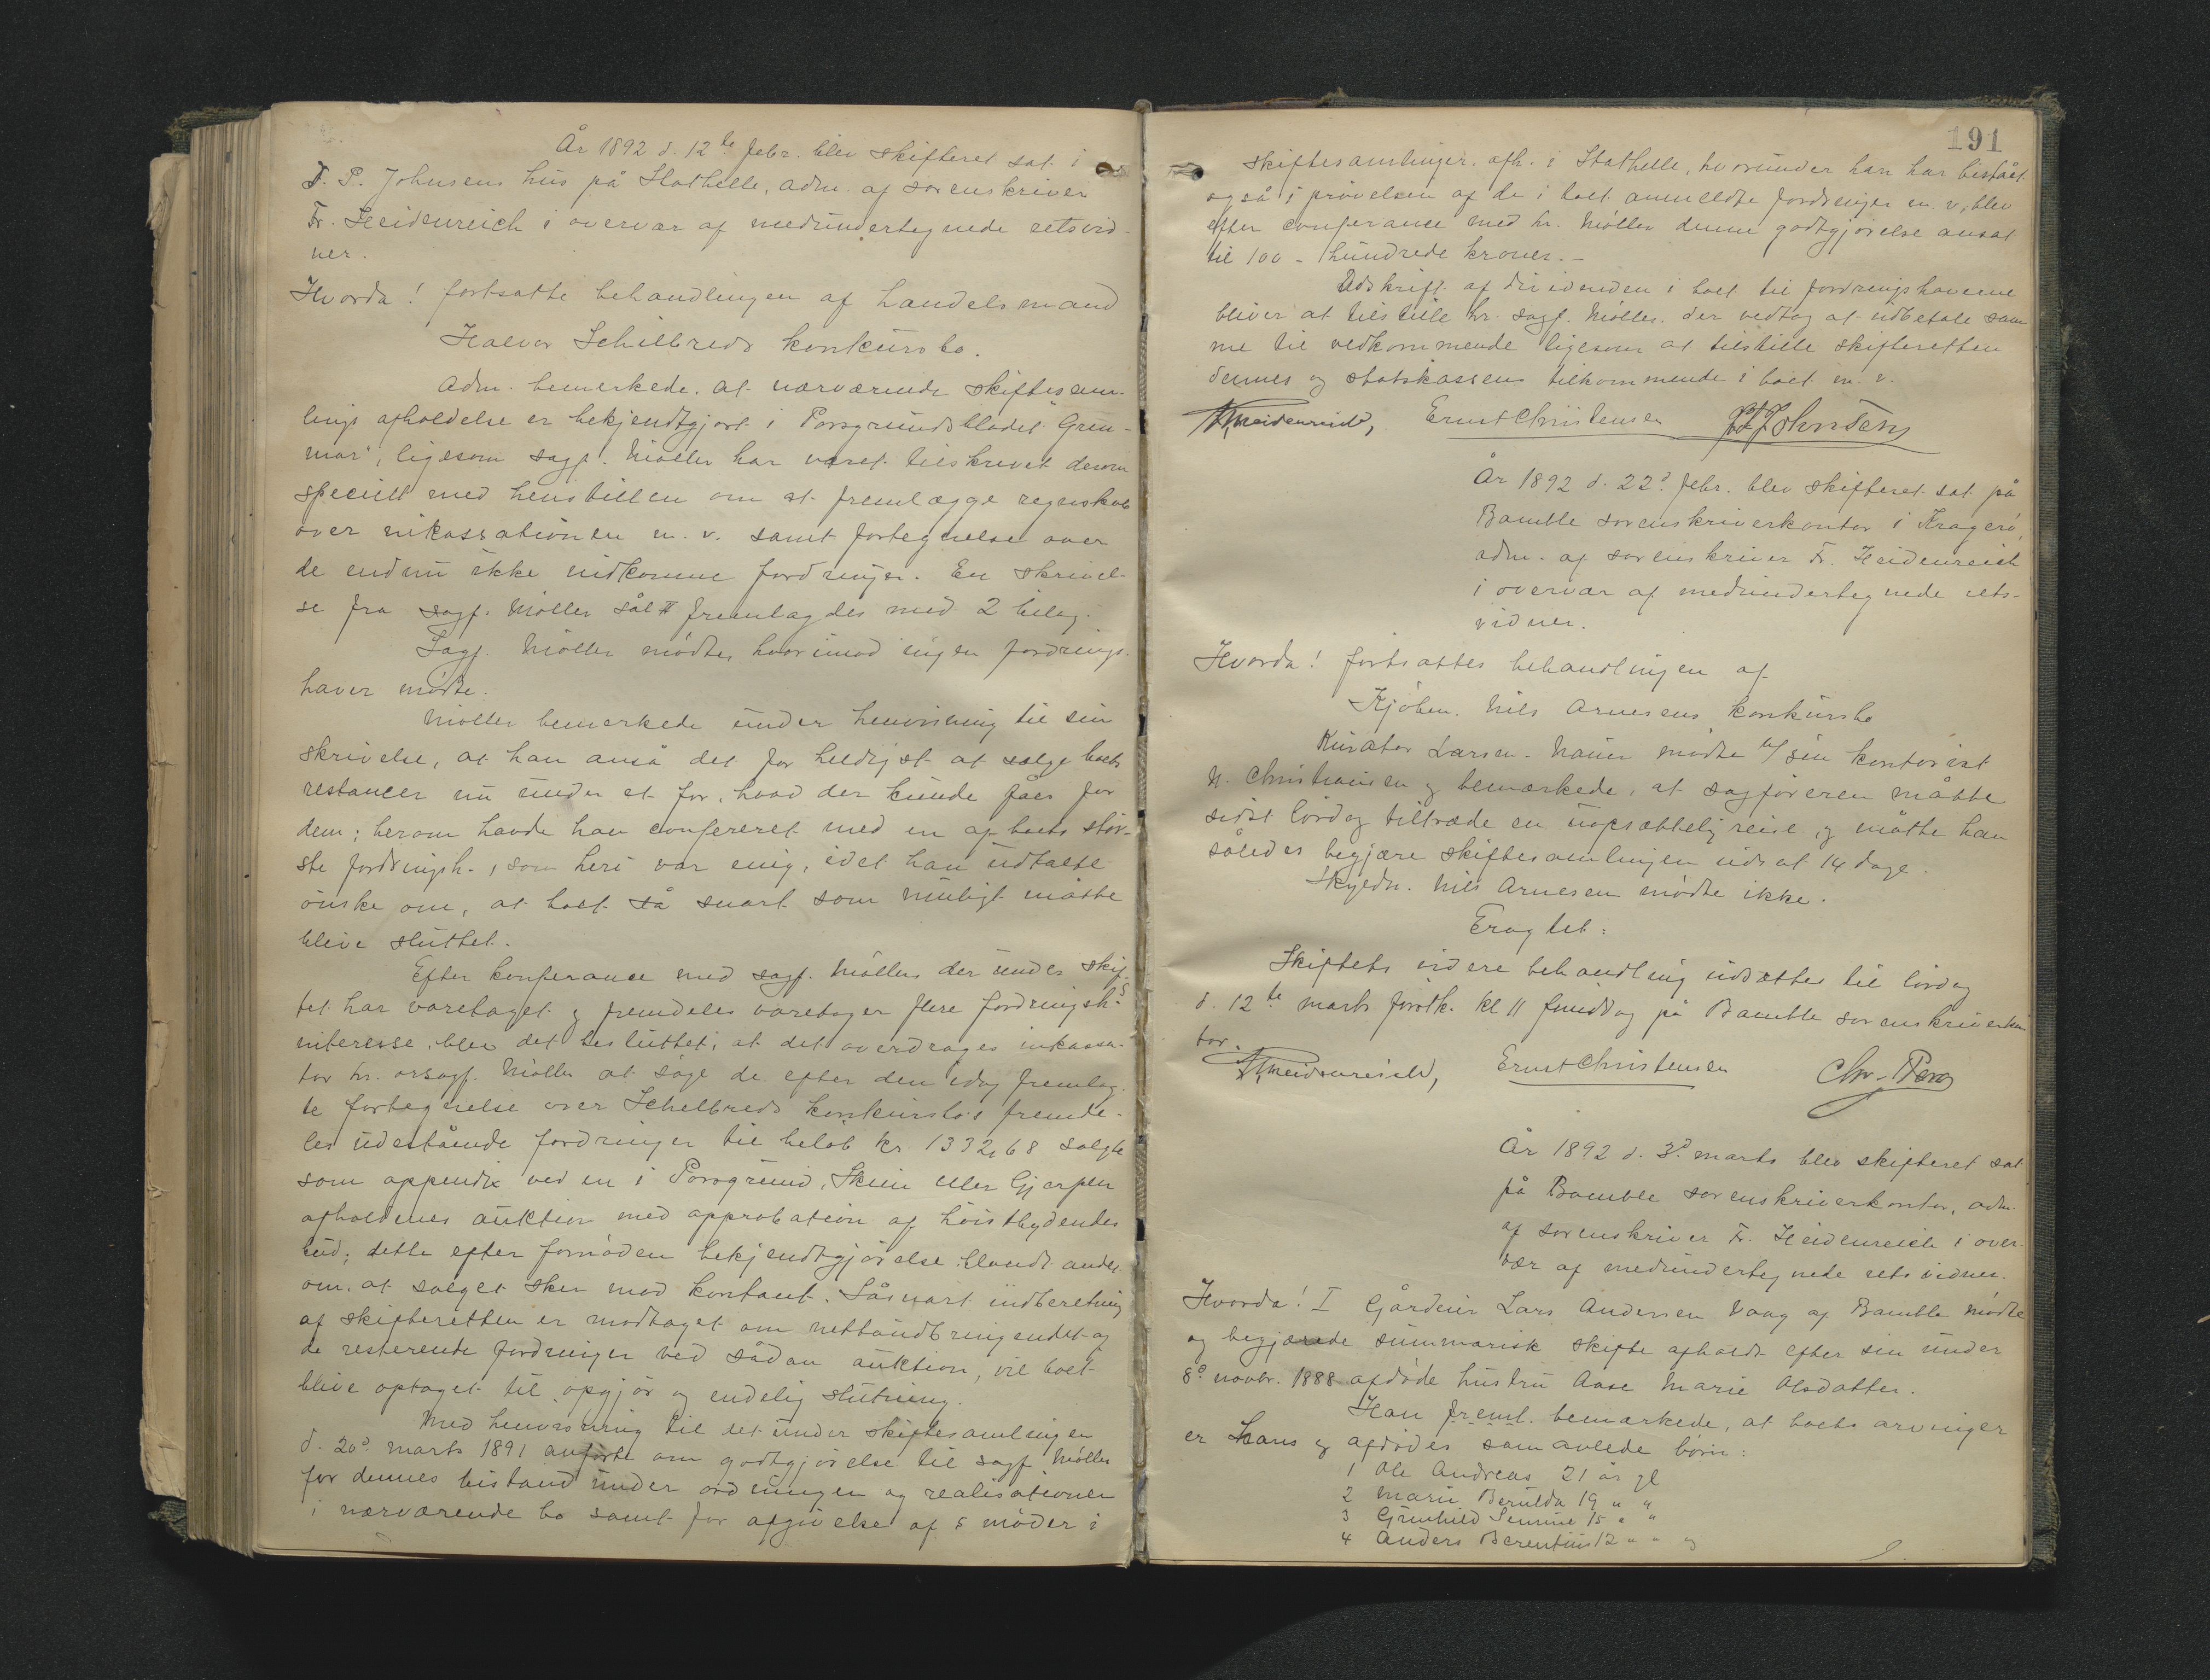 År 1892 d. 12te febr. blev skifteret sat i
T. P. Johnsens hus på Stathelle, adm. af sorenskriver
Fr. Heidenreich i overvær af medundertegnede retsvid-
ner.
Hvorda! fortsatte behandlingen af handelsmand
Halvor Schilbreds konkursbo.
Adm. bemerkede, at nærværende skiftesam-
lings afholdelse er bekjendtgjort i Porsgrundsbladet "Gren-
mar", ligesom sagf. Møller har været tilskrevet derom
specielt med henstillen om at fremlægge regnskab
over inkassationen m. v. samt fortegnelse over
de endnu ikke indkomne fordringer. En skrivel-
se fra sagf. Møller fremlagdes med 2 bilag.
Sagf. Møller mødte, hvorimod ingen fordrings-
haver mødte.
Møller bemerkede under henvisning til sin
skrivelse, at han anså det for heldigst at sælge boets
restancer nu under et for, hvad der kunde fåes for
dem; herom havde han confereret med en af boets stör-
ste fordringsh., som heri var enig, idet han udtalte
ønske om, at boet så snart som muligt måtte
blive sluttet.
Efter konferance med sagf. Møller der under skif-
tet har varetaget og fremdeles varetager flere fordringsh.s
interesse, blev det besluttet, at det overdrages inkassa-
tor hr. orsagf. Møller at søge de efter den idag fremlag-
te fortegnelse over Schelbreds konkursbo's fremde-
les udestående fordringer til beløb kr 1332,68 solgte
som appendix ved en i Porsgrund, Skien eller Gjerpen
afholdenes auktion med approbation af høistbydendes
bud; dette efter fornøden bekjendtgjørelse blandt andet
om, at salget sker mod kontant. Såsnart indberetning
af skifteretten er modtaget om nettoudbringendet af
de resterende fordringer ved sådan auktion, vil boet
blive optaget til opgjør og endelig slutning.
Med henvisning til det under skiftesamlingen
d. 20de marts 1891 anførte om godtgjørelse til sagf Møller
for dennes bistand under ordningen og realisationen
i nærværende bo samt for afgivelse af 5 møder i
191
skiftesamlinger. afh. i Stathelle, hvorunder han har bistået
også i prøvelsen af de i boet anmeldte fordringer m. v, blev
efter conferance med hr. Møller denne godtgjørelse ansat
til 100 - hundrede kroner. -
Udskrift af dividenden i boet til fordringshaverne
bliver at tilstille hr. sagf. Møller, der vedtog at udbetale sam
me til vedkommende ligesom at tilstille skifteretten
dennes og statskassens tilkommende i boet m. v.
Fr Heidenreich, Ernst Christensen Johnsen
År 1892 d. 22d febr. blev skifteret sat på
Bamble sorenskriverkontor i Kragerø,
adm. af sorenskriver Fr. Heidenreich
i overvær af medundertegnede rets-
vidner.
Hvorda! fortsattes behandlingen af
Kjøbm. Nils Arnesens konkursbo
Kurator Larsen-Naur mødte v/ sin kontorist
N. Christiansen og bemærkede, at sagføreren måtte
sidst lørdag tiltræde en uopsættelig reise, og måtte han
således begjære skiftesamlingen udsat 14 dage.
Skyldn. Nils Arnesen mødte ikke.
Eragtet:
Skiftets videre behandling udsættes til lørdag
d. 12te marts førstk. kl 11 fmiddag på Bamble sorenskriverkon
tor.
Fr Heidenreich, Ernst Christensen Chr. Berg
År 1892 d. 3d marts blev skifteret sat
på Bamble sorenskriverkontor, adm.
af sorenskriver Fr. Heidenreich i over
vær af medundertegnede retsvidner.
Hvorda! I Gårdeier Lars Andersen Vaag af Bamble mødte
og begjærede summarisk skifte afholdt efter sin under
8d novbr. 1888 afdøde hustru Aase Marie Olsdatter.
Han freml. bemærkede, at boets arvinger
er hans og afdødes samavlede børn:
1 Ole Andreas 21 år gl
2 Marie Berulda 19 " "
3 Grunhild Semine 15 " "
4 Anders Berentius 12 " " og